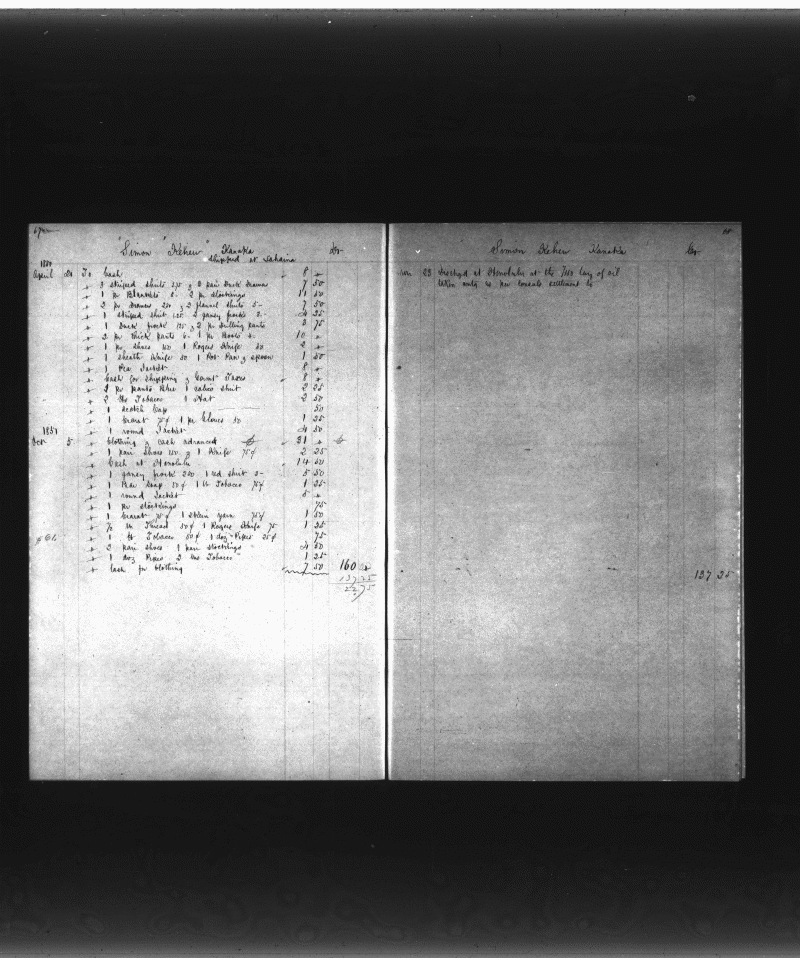 "Simon" "Kehew" Kanaka Dr
Shipped at Lahaina
1850
April To Cash 8 "
" 3 striped shirts 2 pair Duck Drawers 7 50
" 1 pr Blankets 2 pr stockings 11 50
" 2 pr Drawers 2 flannel shirts 5- 7 50
" 1 striped shirt 2 gansy frocks 4 25
" 1 Duck frock 125 & 2 pr Drilling pants 3 75
" 2 pr thick pants 6- 1 pr Boots 4- 10 "
" 1 pr shoes 1 Rogers knife 50 2 "
" 1 sheath knife 50 1 Pot Pan & spoon 1 50
" 1 Pea Jacket 8 "
" Cash for shipping & Govmt Taxes 8 "
" 2 pr pants Blue 1 calico shirt 2 25
" 2 lbs Tobacco 1 Hat 2 50
" 1 scotch Cap 50
" 1 75¢ 1 pr Gloves 50 1 25
" 1 round Jacket 4 50
1851
Oct 5 " Clothing & cash advanced 31 "
" 1 pair shoes & 1 knife 75¢ 2 25
" Cash at Honolulu 14 50
" 1 gansy frock 250 1 red shirt 3- 5 50
" 1 Bear soap 50¢ 1 lb Tobacco 75¢ 1 25
" 1 round Jacket 5 "
" 1 pr stockings 75
" 1 75¢ 1 skein yarn 75¢ 1 50
" ½ lb Thread 50¢ 1 Rogers knife 75 1 25
" 1 lb Tobacco 50¢ 1 doz Pipes 25¢ 75
" 3 pair shoes 1 pair stockings 4 50
" 1 doz Pipes 2 lbs Tobacco 1 25
" Cash for clothing 7 50 160
137.25
22.75
Simon Kehew Kanaka Cr
23 Discharged at Honolulu at the lay of oil
taken out as per consuls settlement is
137 25